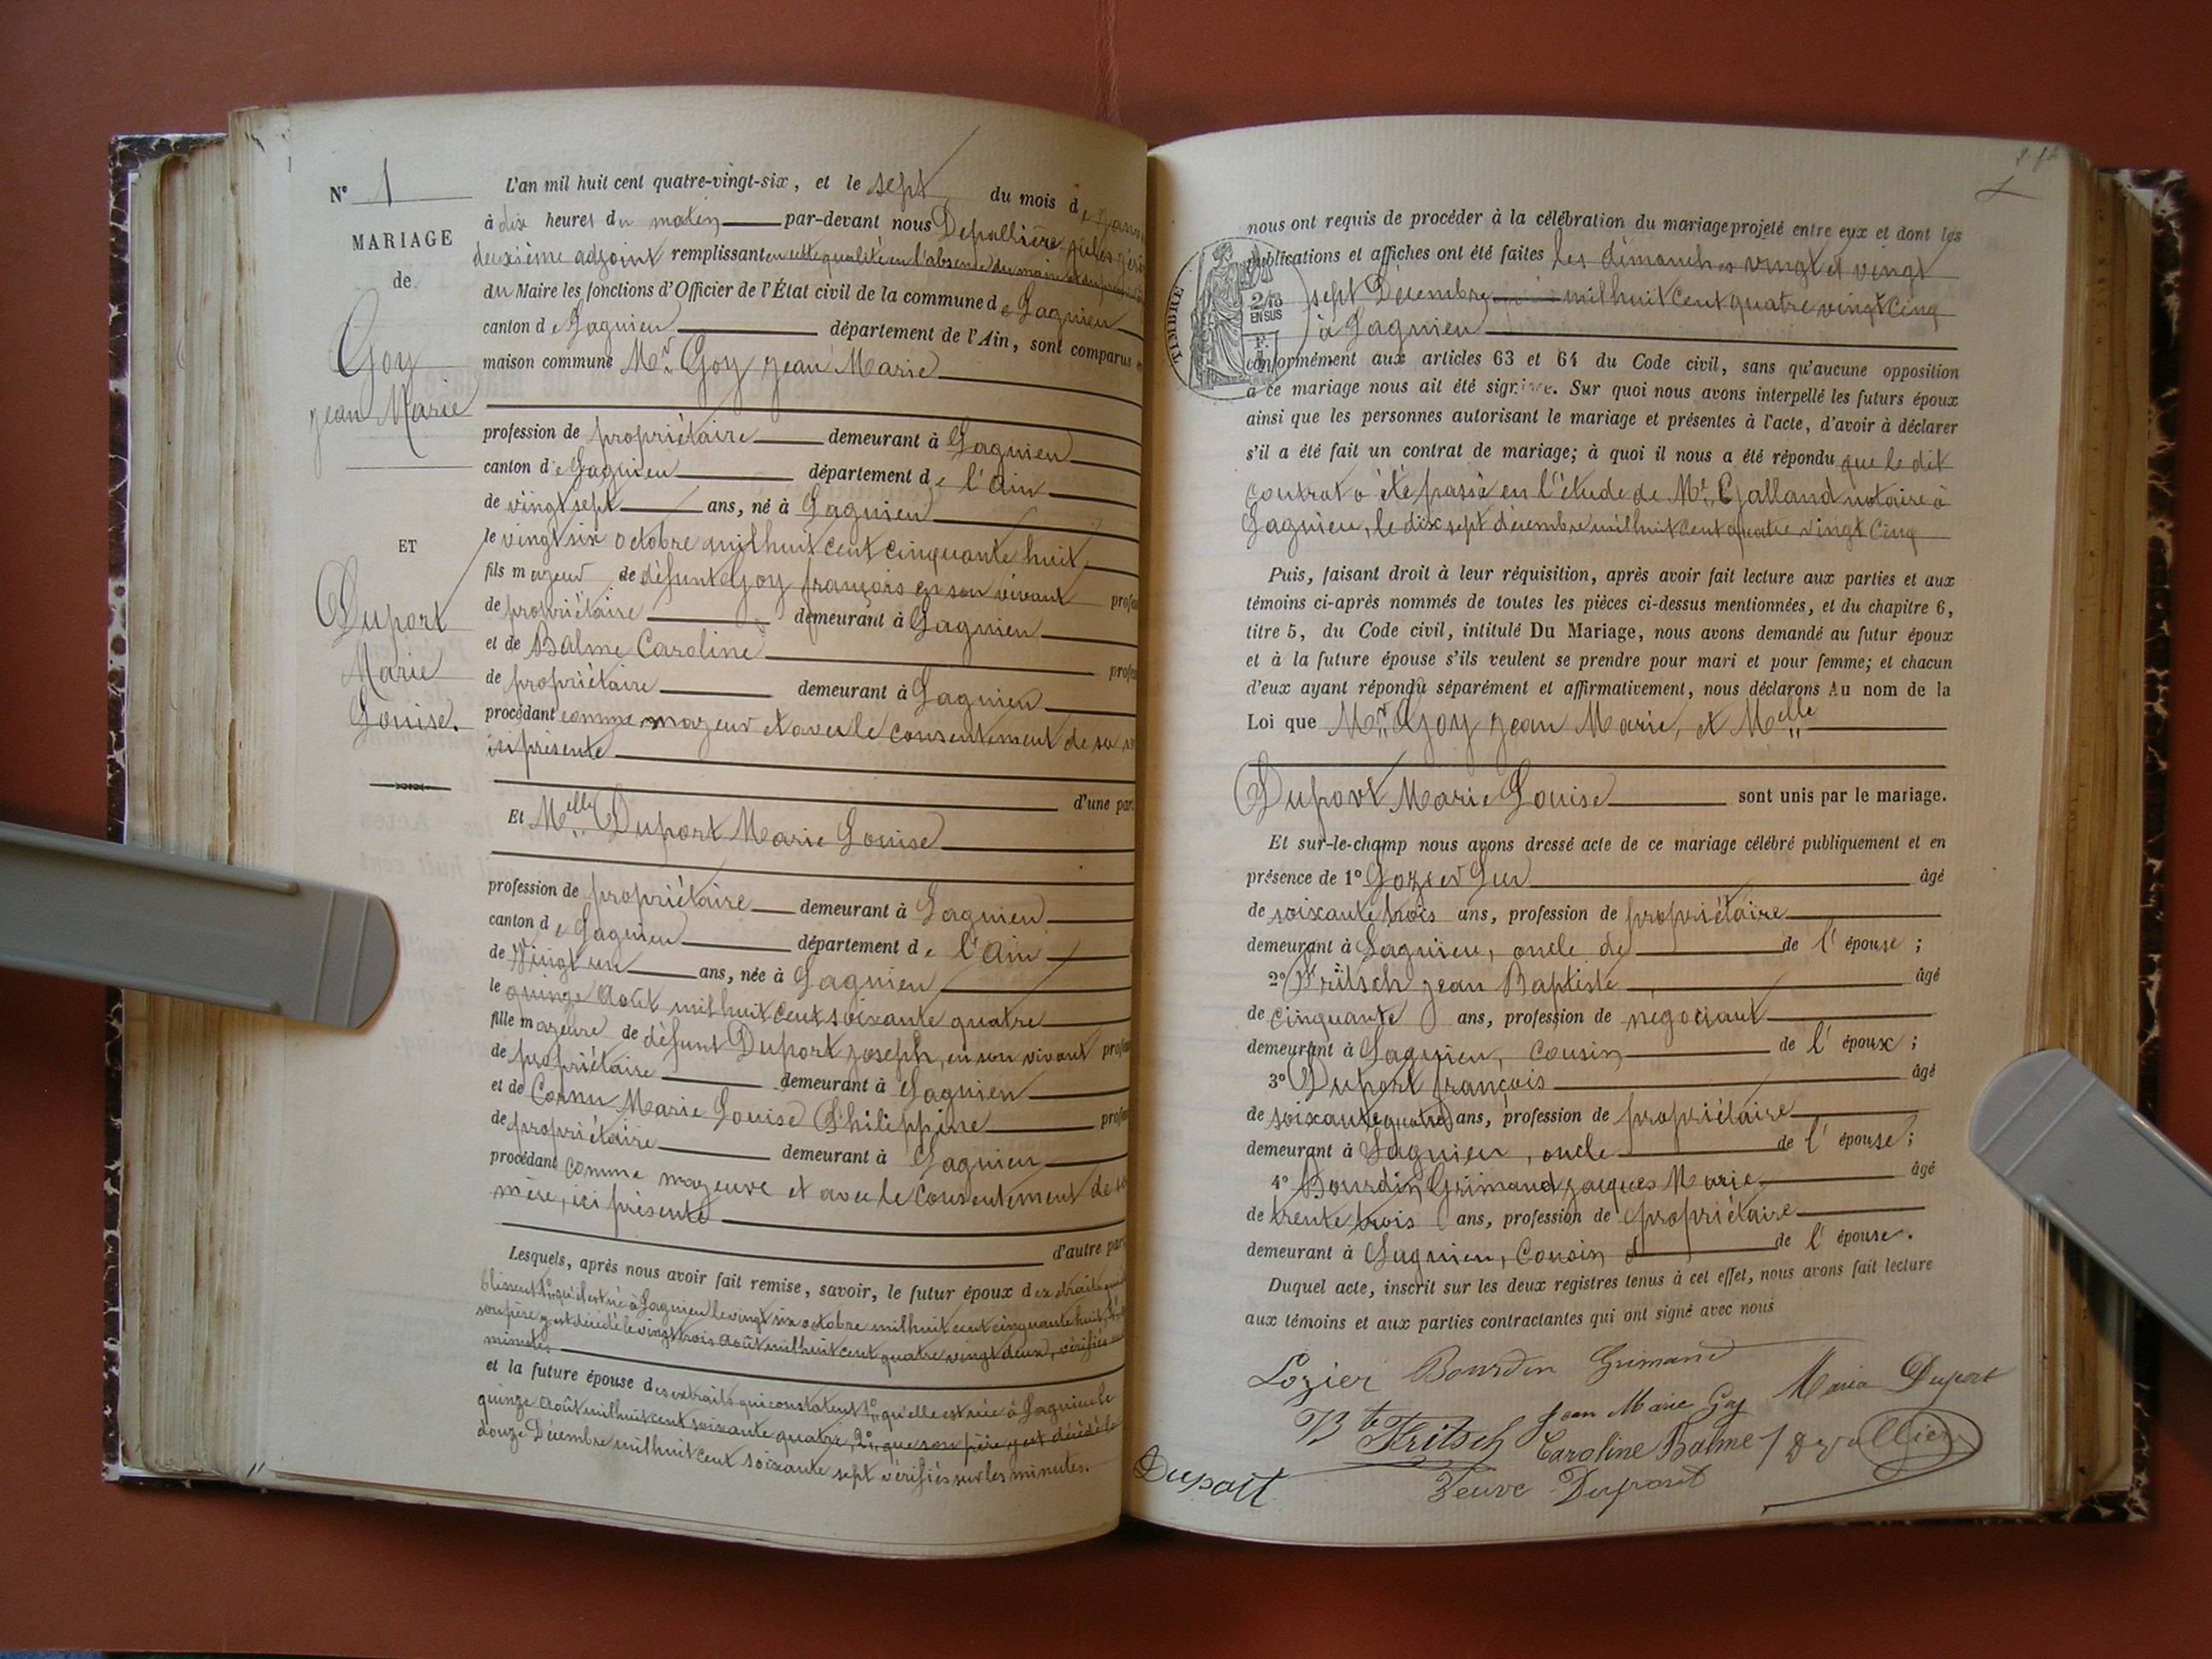 N° 1
MARIAGE
de
Goy
Jean Marie
ET
Duport
Marie
Louise.
L'an mil huit cent quatre-vingt-six, et le sept du mois de
à dix heures du matin par-devant nous Depallière Jules
deuxième adjoint remplissant en cette qualité en l'absence du maire
du Maire les fonctions d'Officier de l'État civil de la commune de Lagnieu
canton de Lagnieu département de l'Ain, sont comparus
maison commune Mr Goy Jean Marie
profession de propriétaire demeurant à Lagnieu
canton de Lagnieu département de l'Ain
de vingt sept ans, né à Lagnieu
le vingt six octobre mil huit cent cinquante huit
fils majeur de défunt Goy françois en son vivant
de propriétaire demeurant à Lagnieu
et de Balme Caroline
de propriétaire demeurant à Lagnieu
procédant comme majeur et avec le consentement de sa
ici présente
d'une par
Et Melle Duport Marie Louise
profession de propriétaire demeurant à Lagnieu
canton de Lagnieu département de l'Ain
de Vingt un ans, née à Lagnieu
le quinze Août mil huit cent soixante quatre
fille majeure de défunt Duport Joseph, en son vivant
de propriétaire demeurant à Lagnieu
et de Cornu Marie Louise Philippine
de propriétaire demeurant à Lagnieu
procédant comme majeure et avec le consentement de
mère, ici présente
d'autre par
Lesquels, après nous avoir fait remise, savoir, le futur époux d extraits
blissent 1° qu'il est né à Lagnieu le vingt six octobre mil huit cent cinquante huit,
son père y est décédé le vingt trois Août mil huit cent quatre vingt deux, vérifiés
minutes
et la future épouse des extraits qui constatent 1° qu'elle est née à Lagnieu le
quinze Août mil huit cent soixante quatre, 2° que son père y est décédé le
douze Décembre mil huit cent soixante sept vérifiés sur les minutes.
nous ont requis de procéder à la célébration du mariage projeté entre eux et dont les
publications et affiches ont été faites les dimanches vingt et vingt
sept Décembre mil huit cent quatre vingt cinq
à Lagnieu
TIMBRE
2/10
EN SUS
conformément aux articles 63 et 64 du Code civil, sans qu'aucune opposition
à ce mariage nous ait été signifiée. Sur quoi nous avons interpellé les futurs époux
ainsi que les personnes autorisant le mariage et présentes à l'acte, d'avoir à déclarer
s'il a été fait un contrat de mariage; à quoi il nous a été répondu que le dit
contrat a été passé en l'étude de Me Galland notaire à
Lagnieu, le dix sept décembre mil huit cent quatre vingt cinq
Puis, faisant droit à leur réquisition, après avoir fait lecture aux parties et aux
témoins ci-après nommés de toutes les pièces ci-dessus mentionnées, et du chapitre 6,
titre 5, du Code civil, intitulé Du Mariage, nous avons demandé au futur époux
et à la future épouse s'ils veulent se prendre pour mari et pour femme; et chacun
d'eux ayant répondu séparément et affirmativement, nous déclarons Au nom de la
Loi que Mr Goy Jean Marie, et Melle
Duport Marie Louise sont unis par le mariage.
Et sur-le-champ nous avons dressé acte de ce mariage célébré publiquement et en
présence de 1° Lozier âgé
de soixante trois ans, profession de propriétaire
demeurant à Lagnieu, oncle de de l'épouse;
2° Fritsch Jean Baptiste âgé
de cinquante ans, profession de negociant
demeurant à Lagnieu, cousin de l'époux;
3° Duport françois âgé
de soixante quatre ans, profession de propriétaire
demeurant à Lagnieu, oncle de l'épouse;
4° Bourdin Grimaud Jacques Marie âgé
de trente trois ans, profession de propriétaire
demeurant à Lagnieu, Cousin d de l'épouse.
Duquel acte, inscrit sur les deux registres tenus à cet effet, nous avons fait lecture
aux témoins et aux parties contractantes qui ont signé avec nous
Lozier Bourdin Grimaud
Jean Marie Goy Maria Duport
Bte Fritsch Caroline Balme
Duport Veuve Duport